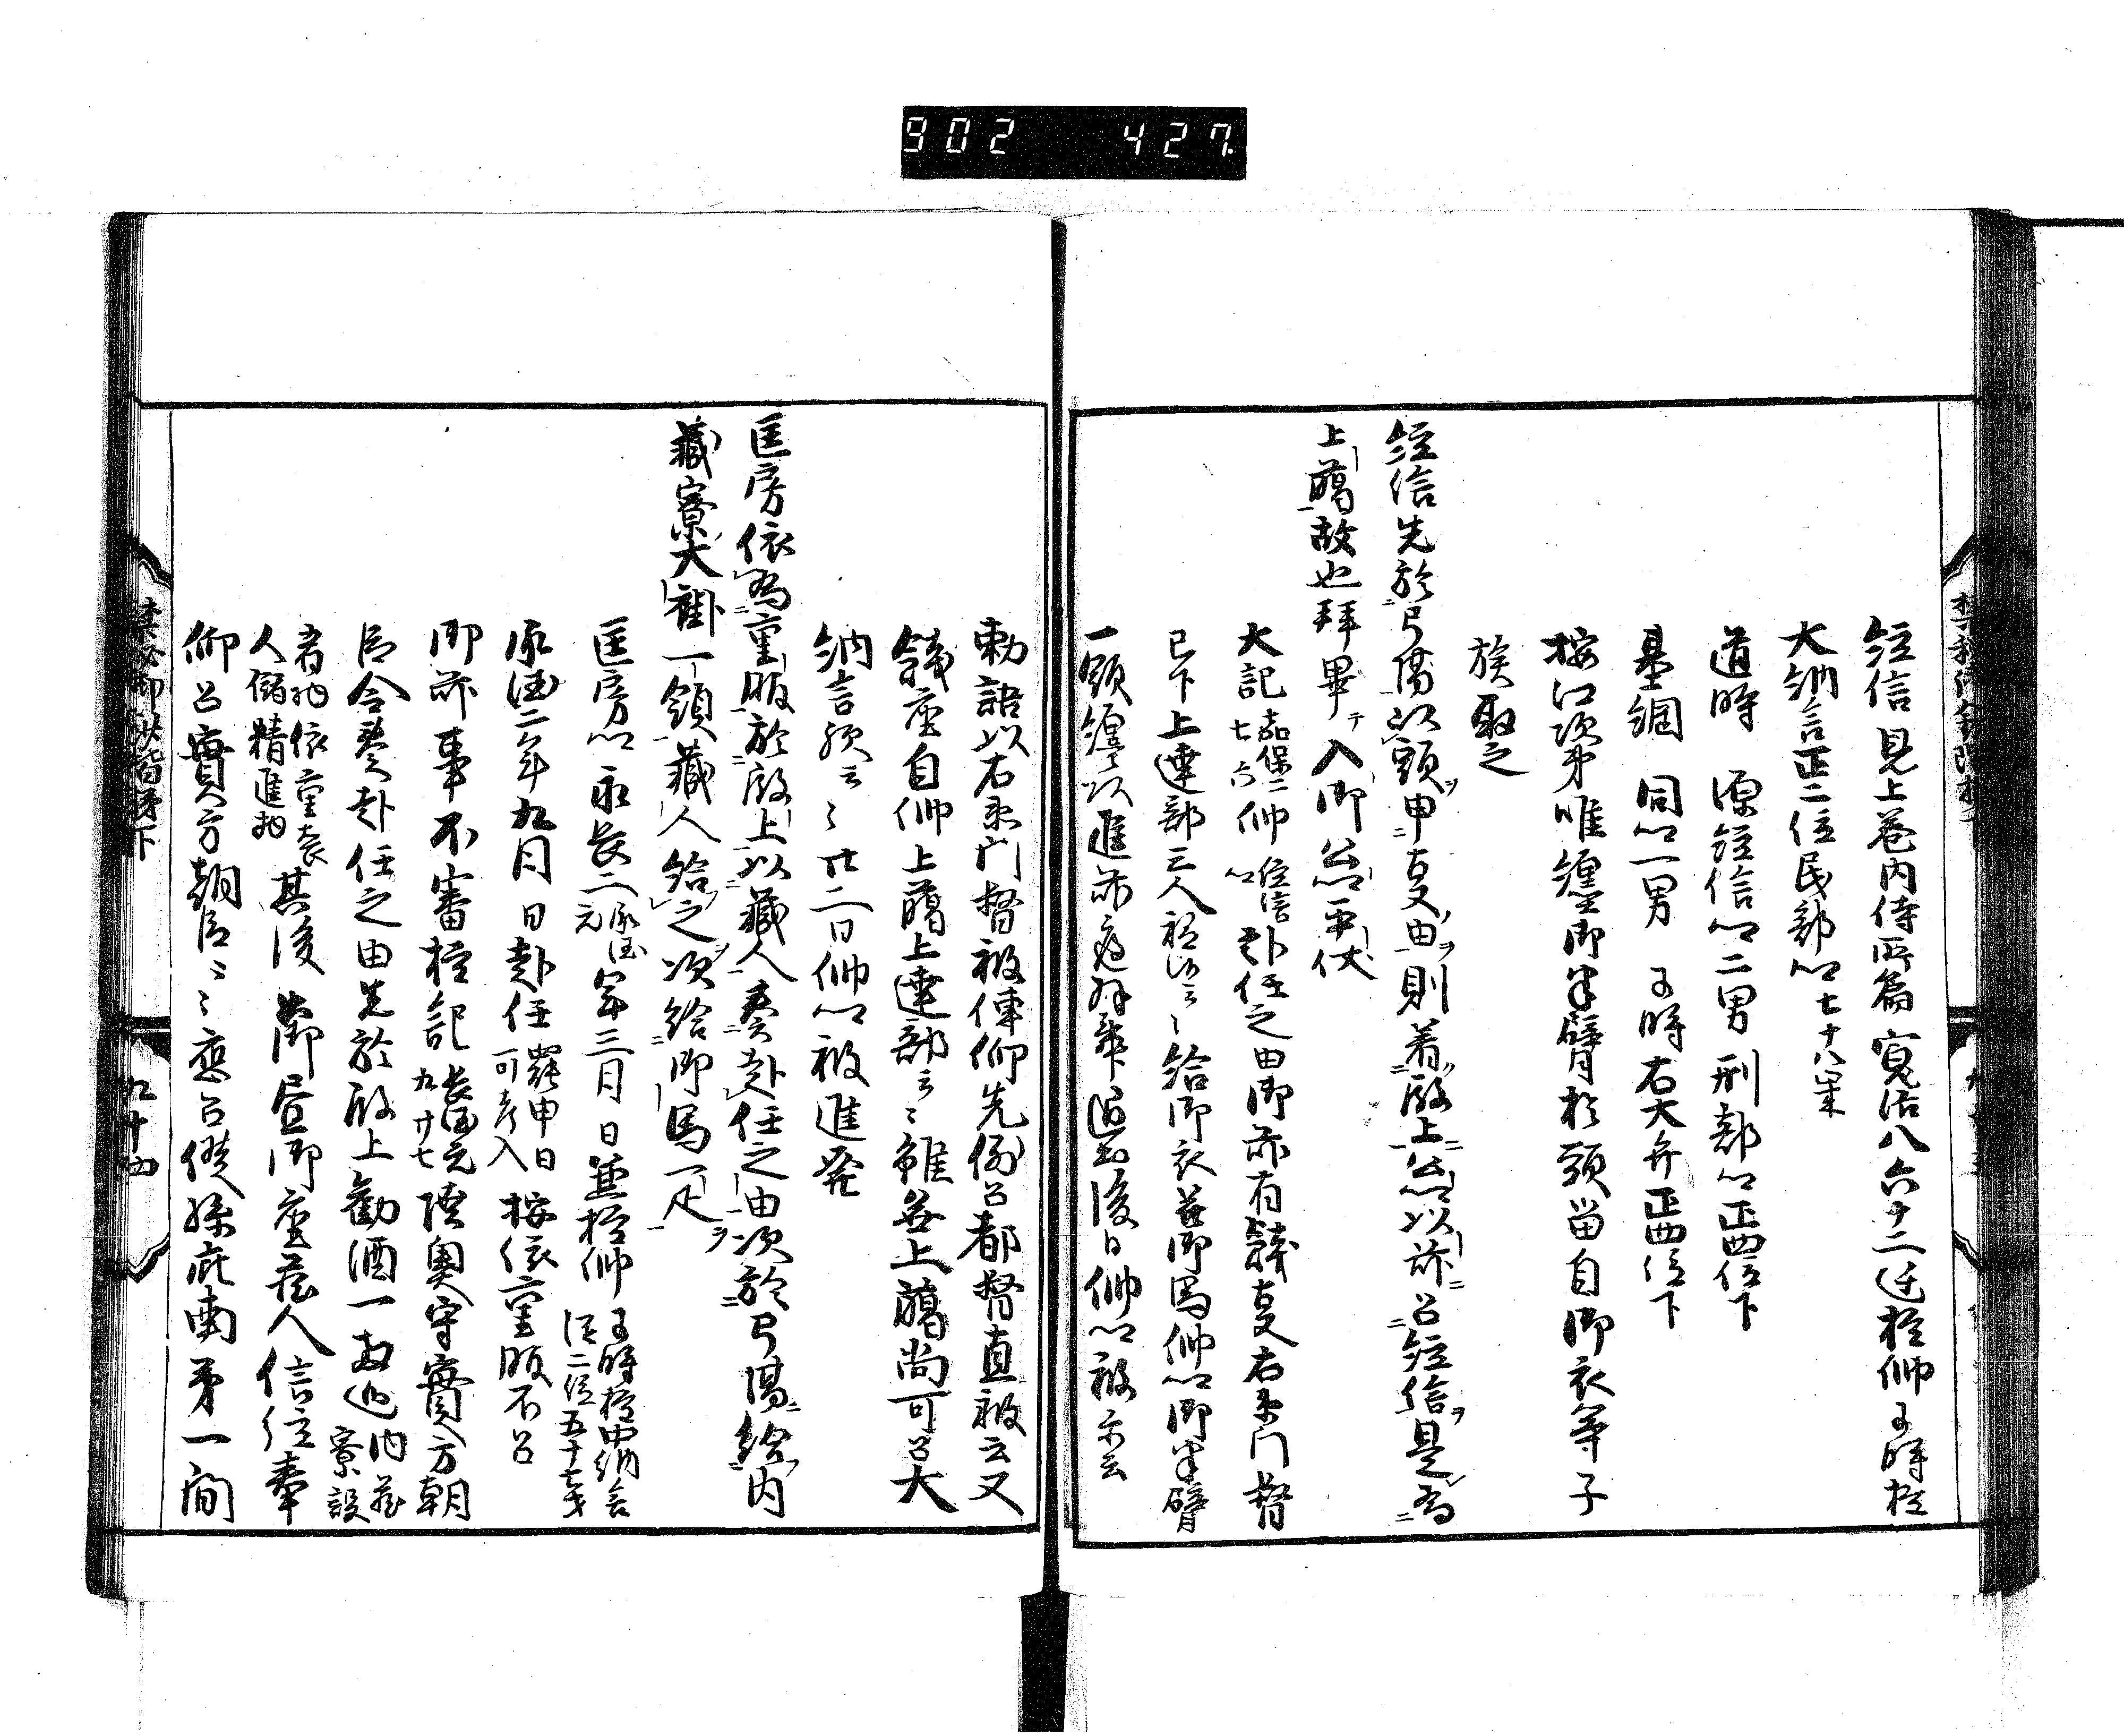 902 427
経信見上巻内侍所篇寛治八六十二迁権帥于時権
大納言正二位民部卿七十八才
道時 源経信卿二男刑部卿正四位下
基綱 同卿一男 于時右大弁正四位下
按江次第唯纏御半臂於頭当自御衣等子
族取之
経信先於弓場以頭申事由則着殿上公卿以前召経信是為
上臈故也拝畢テ入御公卿平伏
大記嘉保二七六帥経信卿赴任之由御前有餞事右衛門督
已下上達部三人祗候云々給御衣并御馬帥卿御半臂
一領纏頭進前庭拝舞退出後日帥卿被示云
勅語以右衛門督被伝仰先例召都督直被云又
餞座自帥上臈上達部云々雖無上臈尚可召大
納言歟云々廿二日帥卿被進発
匡房依為重服於殿上以蔵人奏赴任之由次於弓場給内
蔵寮大褂一領蔵人給之次給御馬一疋
匡房卿永長二承徳元年三月 日兼権帥于時権中納言従二位五十七才
承徳二年九月 日赴任 可考入 按依重服不召
御前事不審権記長徳元九廿七陸奥守実方朝
臣令奏赴任之由先於殿上勧酒一両巡内蔵寮設
肴物依重喪人儲精進物其後出御昼御座蔵人信経奉
仰召実方朝臣々々応召候孫庇南第一間
禁秘御抄階梯下
九十四